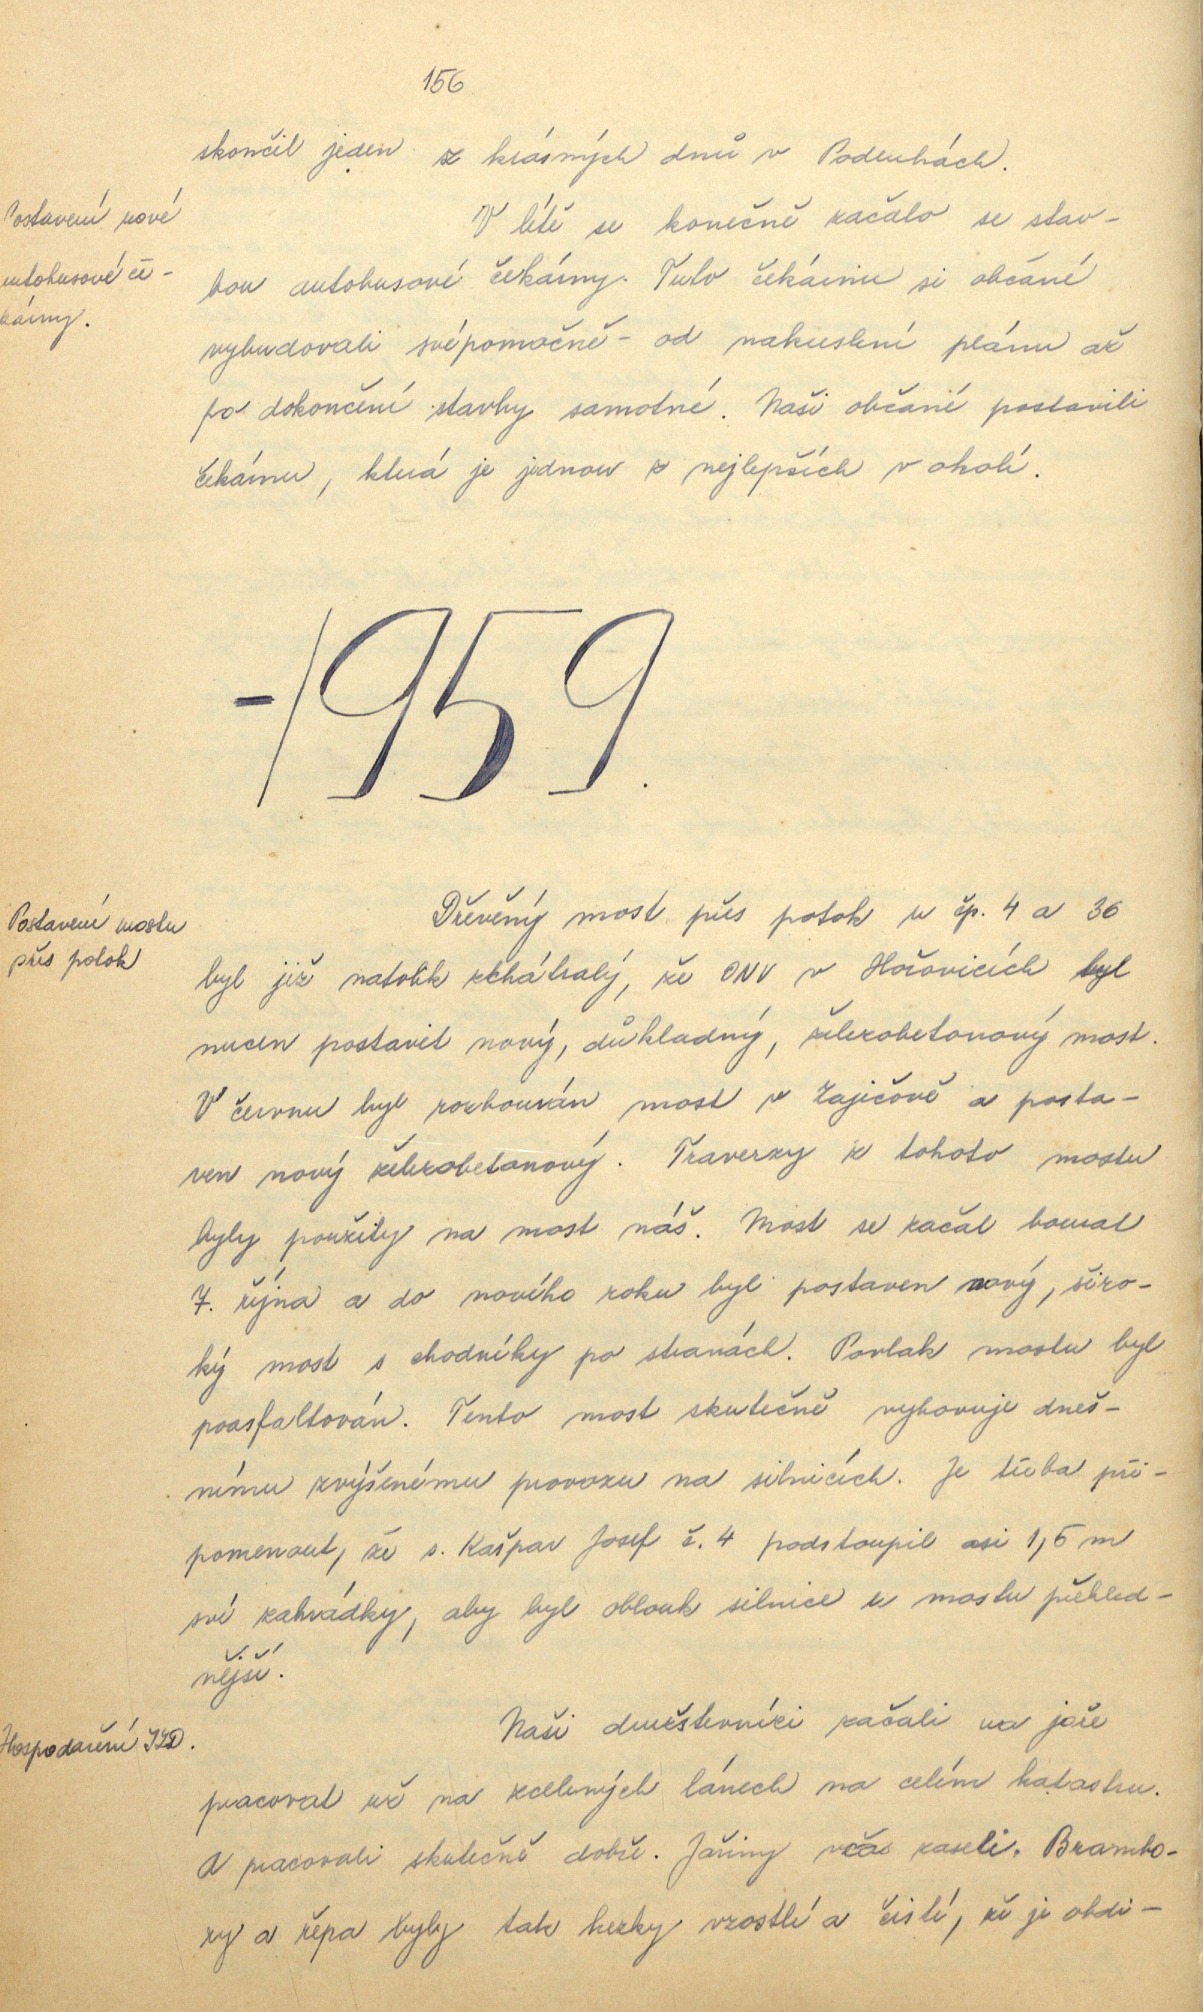 156
skončil jeden z krásných dnů v Podluhách.
Postavení nové
autobusové če-
kárny.
V létě se konečně začalo se stav-
bou autobusové čekárny. Tuto čekárnu si občané
vybudovali svépomočně - od nakreslení plánu až
po dokončení stavby samotné. Naši občané postavili
čekárnu, která je jednou z nejlepších v okolí.
-1959.
Postavení mostu
přes potok
Dřevěný most přes potok u čp. 4 a 36
byl již natolik zchátralý, že ONV v Hořovicích byl
nucen postavit nový, důkladný, železobetonový most.
V červnu byl rozbourán most v Zajíčově a posta-
ven nový železobetonový. Traverzy z tohoto mostu
byly použity na most náš. Most se začal bourat
7. října a do nového roku byl postaven nový, širo-
ký most s chodníky po stranách. Povlak mostu byl
poasfaltován. Tento most skutečně vyhovuje dneš-
nímu zvýšenému provozu na silnicích. Je třeba při-
pomenout, že s. Kašpar Josef č. 4 podstoupil asi 1,5 m
své zahrádky, aby byl oblouk silnice u mostu přehled-
nější.
Hospodaření JZD.
Naši družstevníci začali na jaře
pracovat už na zcelených lánech na celém katastru.
A pracovali skutečně dobře. Jařiny včas zaseli. Brambo-
ry a řepa byly tak hezky vzrostlé a čisté, že je obdi-